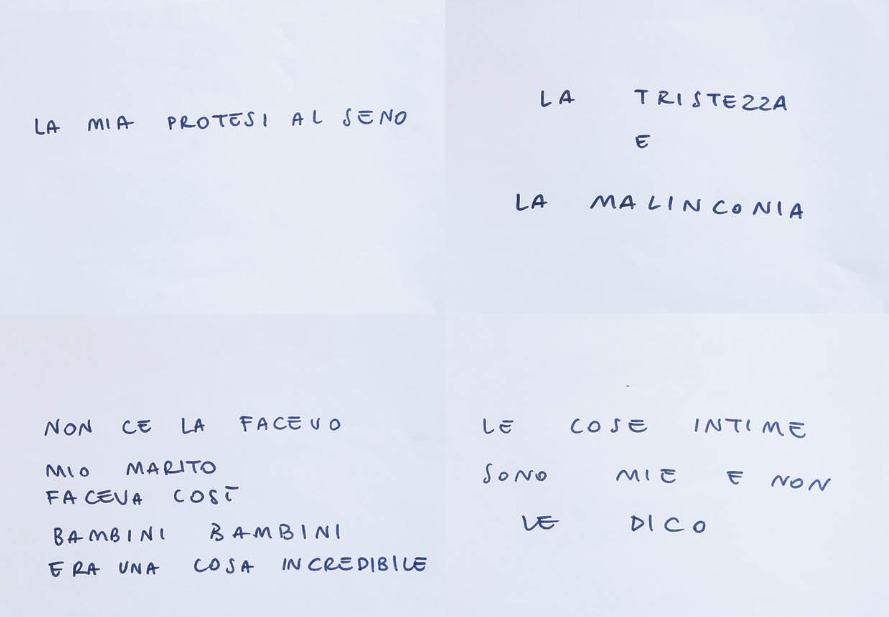 LA MIA PROTESI AL SENO
LA TRISTEZZA
E
LA MALINCONIA
NON CE LA FACEVO
MIO MARITO
FACEVA COSÌ
BAMBINI BAMBINI
ERA UNA COSA INCREDIBILE
LE COSE INTIME
SONO MIE E NON
LE DICO